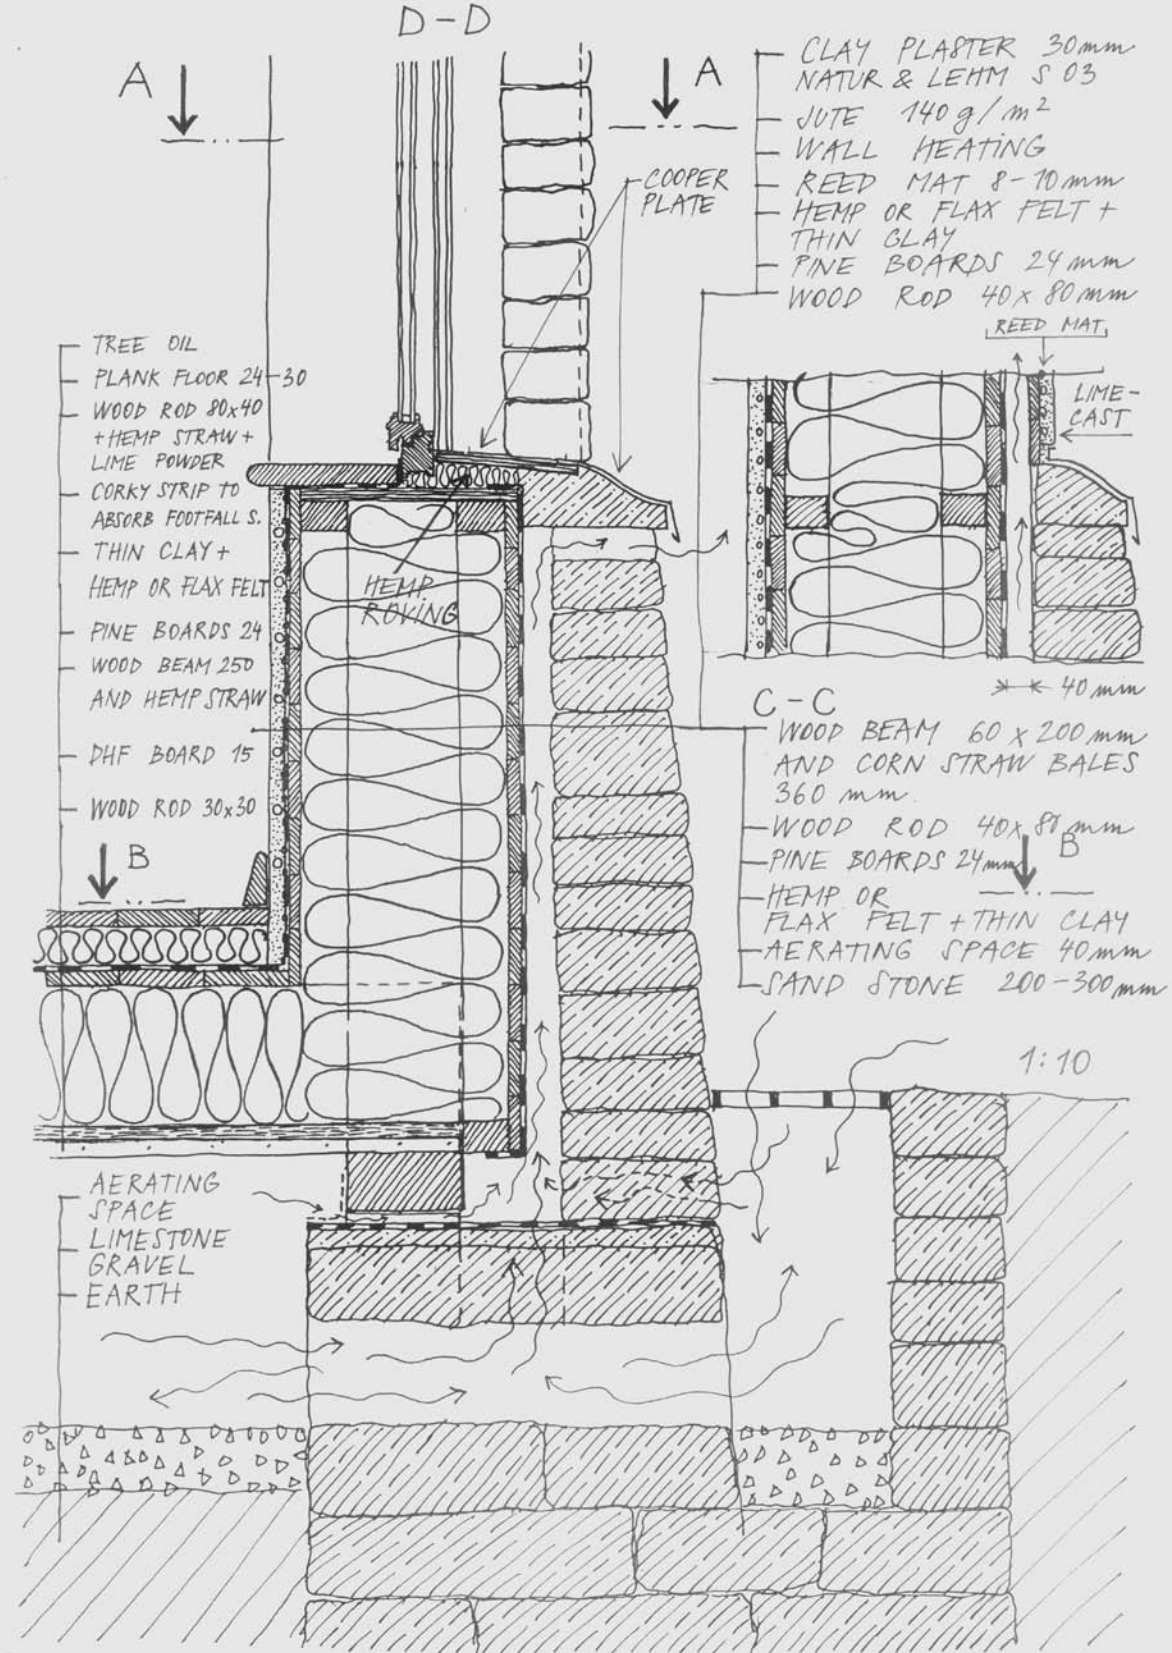 D-D
A
A
CLAY PLASTER 30mm
NATUR & LEHM S 03
JUTE 140 g/m²
WALL HEATING
REED MAT 8-10mm
HEMP OR FLAX FELT +
THIN CLAY
PINE BOARDS 24mm
WOOD ROD 40x80mm
COOPER
PLATE
REED MAT
LIME-
CAST
40mm
C-C
TREE OIL
PLANK FLOOR 24-30
WOOD ROD 80x40
+HEMP STRAW+
LIME POWDER
CORKY STRIP TO
ABSORB FOOTFALL S.
THIN CLAY +
HEMP OR FLAX FELT
PINE BOARDS 24
WOOD BEAM 250
AND HEMP STRAW
DHF BOARD 15
WOOD ROD 30x30
HEMP
ROVING
B
WOOD BEAM 60 x 200mm
AND CORN STRAW BALES
360 mm.
WOOD ROD 40x80mm
PINE BOARDS 24mm
B
HEMP OR
FLAX FELT + THIN CLAY
AERATING SPACE 40mm
SAND STONE 200-300mm
1:10
AERATING
SPACE
LIMESTONE
GRAVEL
EARTH